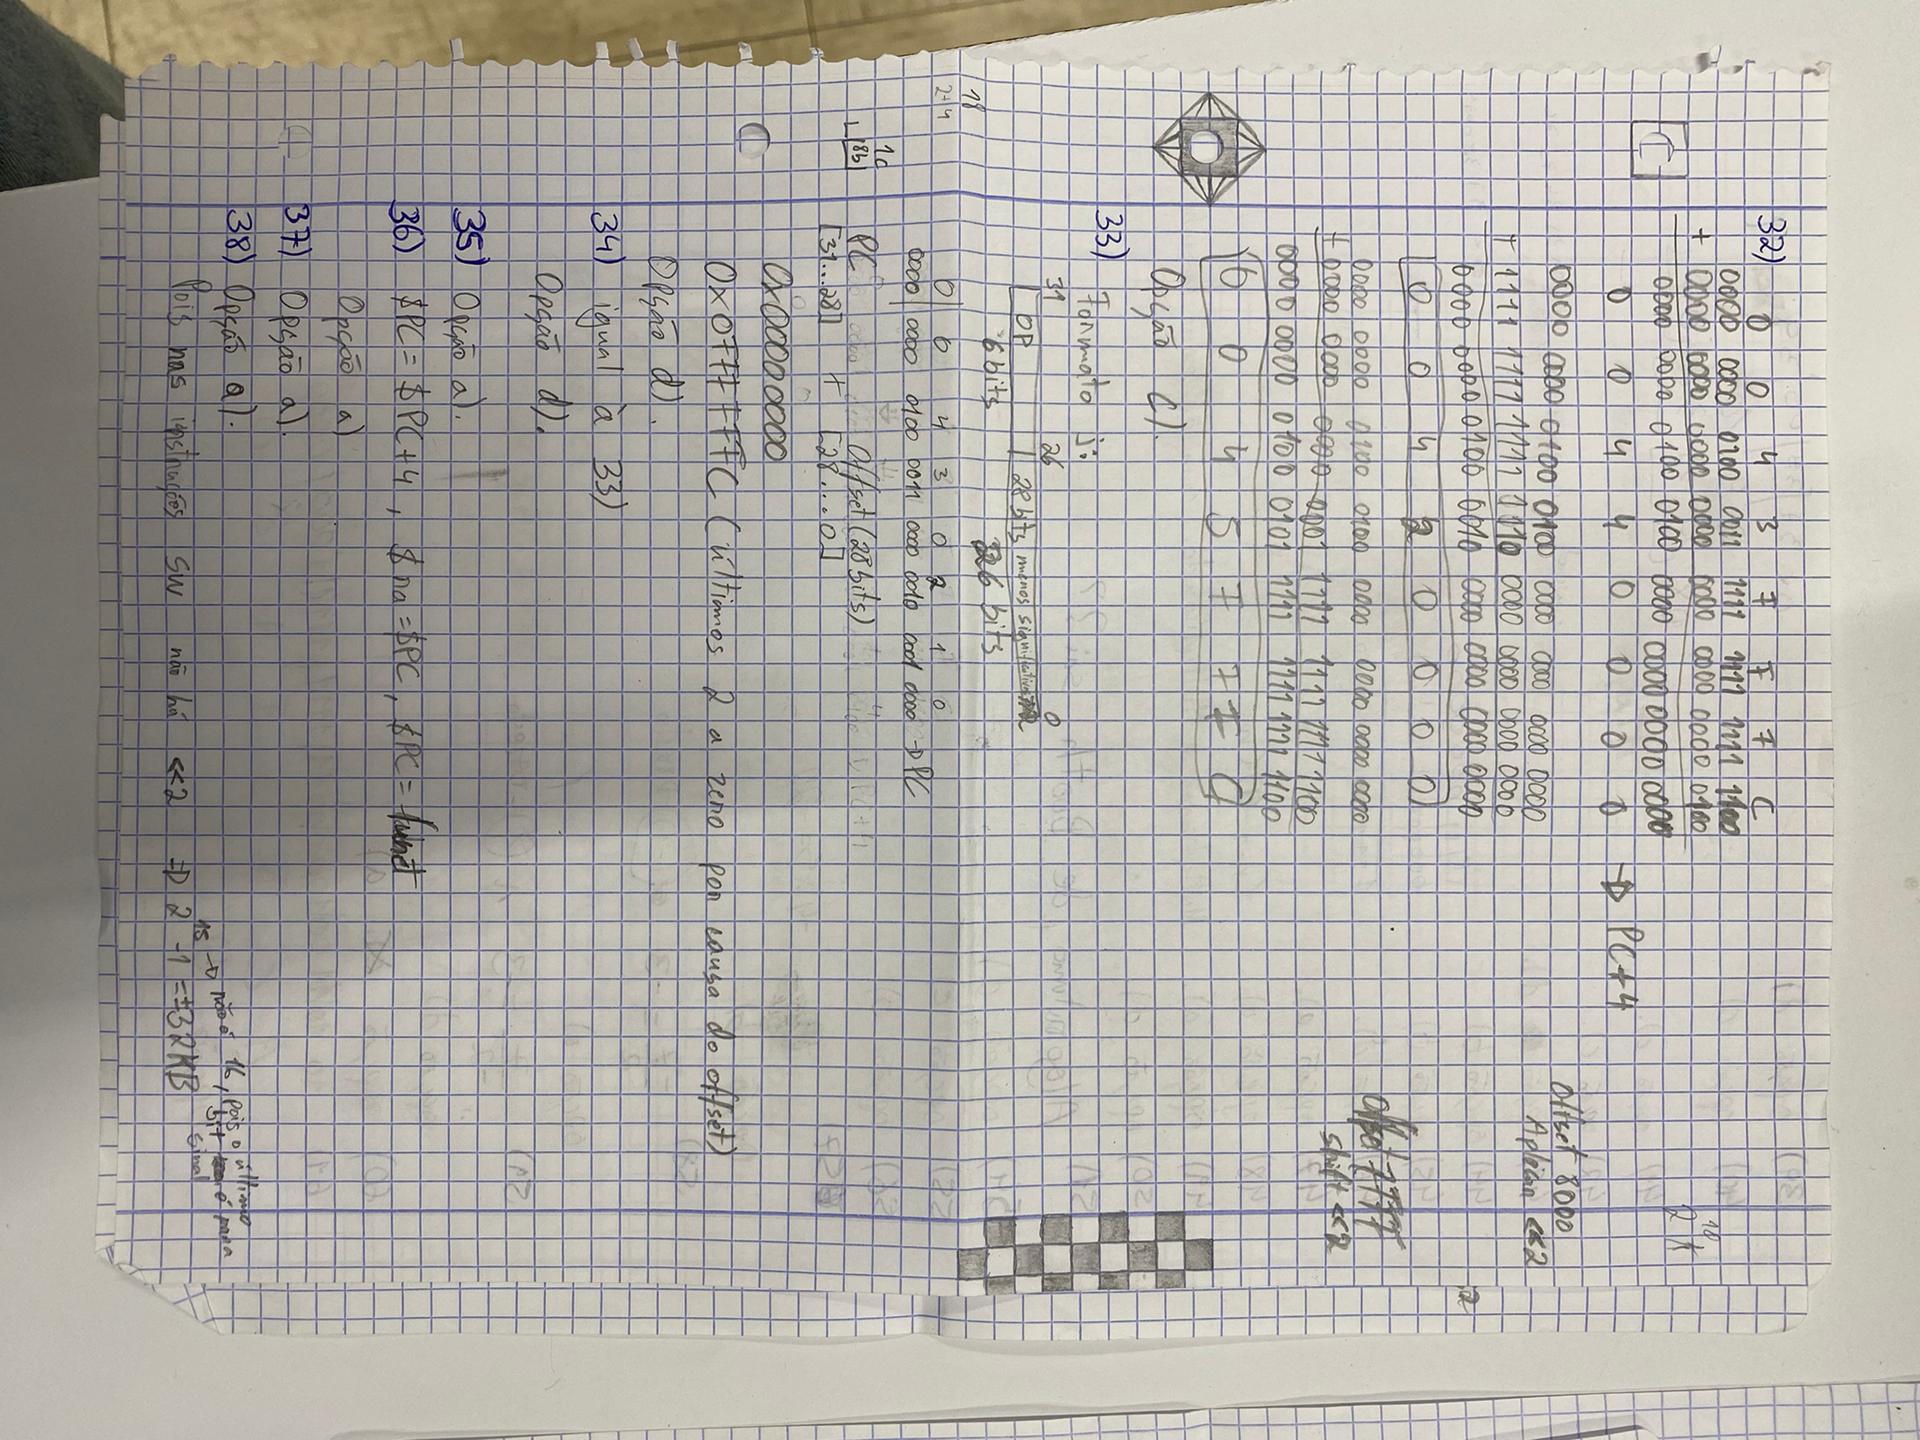 32) 0 0 4 3 F F F C
0000 0000 0100 0011 1111 1111 1111 1100
+ 0000 0000 0000 0000 0000 0000 0000 0100
0000 0000 0100 0100 0000 0000 0000 0000
0 0 4 4 0 0 0 0 → PC+4
2^18
Offset 8000
Aplican <<2
0000 0000 0100 0100 0000 0000 0000 0000
+ 1111 1111 1111 1110 0000 0000 0000 0000
0000 0000 0100 0010 0000 0000 0000 0000
0 0 4 2 0 0 0 0
Offset 7FFF
shift <<2
0000 0000 0100 0100 0000 0000 0000 0000
+ 0000 0000 0000 0001 1111 1111 1111 1100
0000 0000 0100 0101 1111 1111 1111 1100
0 0 4 5 F F F C
Opção c).
33) Formato j:
31 26 0
OP 28 bits menos significativos
6 bits 26 bits
18
2+4
0 0 4 3 0 2 1 0
0000 0000 0100 0011 0000 0010 0001 0000 → PC
PC Offset (28 bits)
[31...28] + [28...0]
0x00000000
0x0FFFFFFC (últimos 2 a zero por causa do offset)
Opção d).
34) igual à 33)
Opção d).
35) Opção a).
36) $PC = $PC+4, $ra = $PC, $PC =
Opção a)
37) Opção a).
38) Opção a).
Pois nas instruções sw não há <<2 ⇒ 2^15 -1 = ±32KB
→ não é 16, pois o último
bit é para
sinal